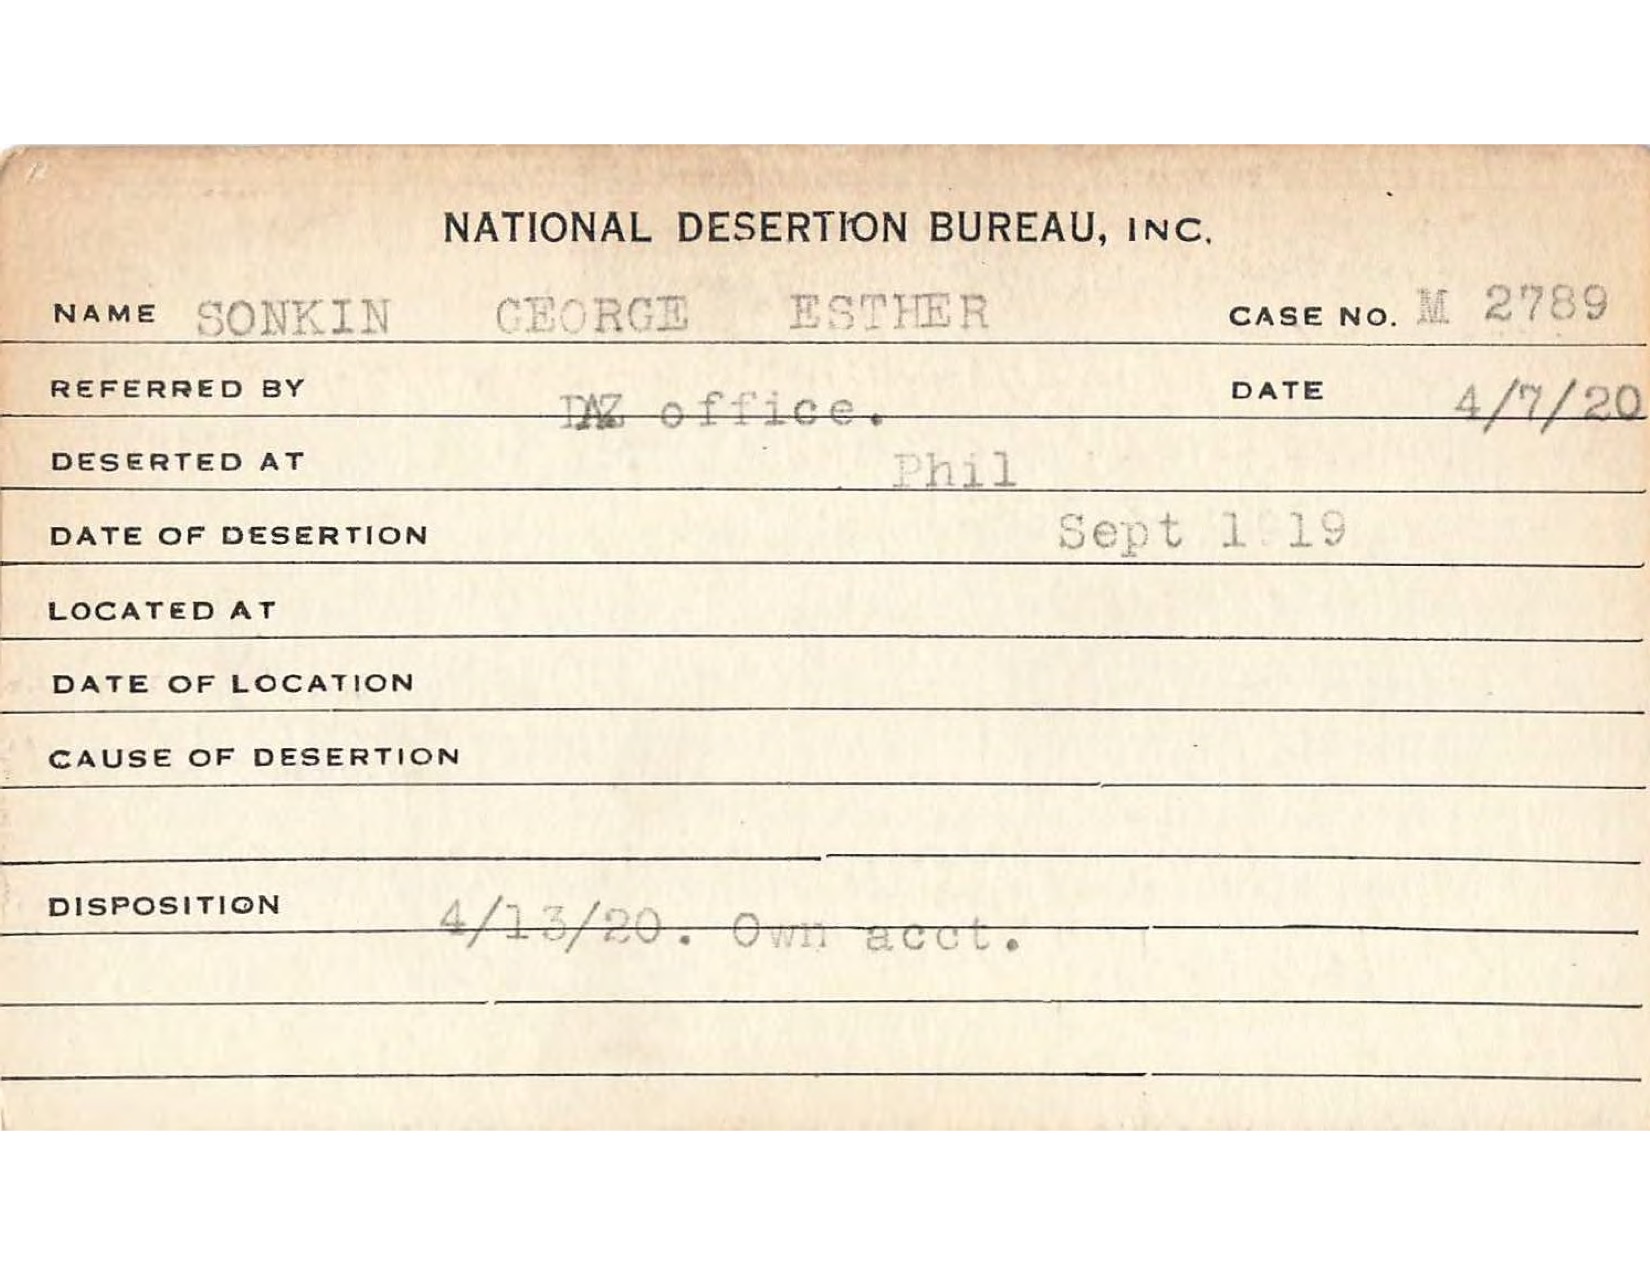 NATIONAL DESERTION BUREAU, INC.
NAME SONKIN GEORGE ESTHER CASE NO. M 2789
REFERRED BY office. DATE 4/7/20
DESERTED AT Phil
DATE OF DESERTION Sept 1 19
LOCATED AT
DATE OF LOCATION
CAUSE OF DESERTION
DISPOSITION 4/13/20. Own acct.